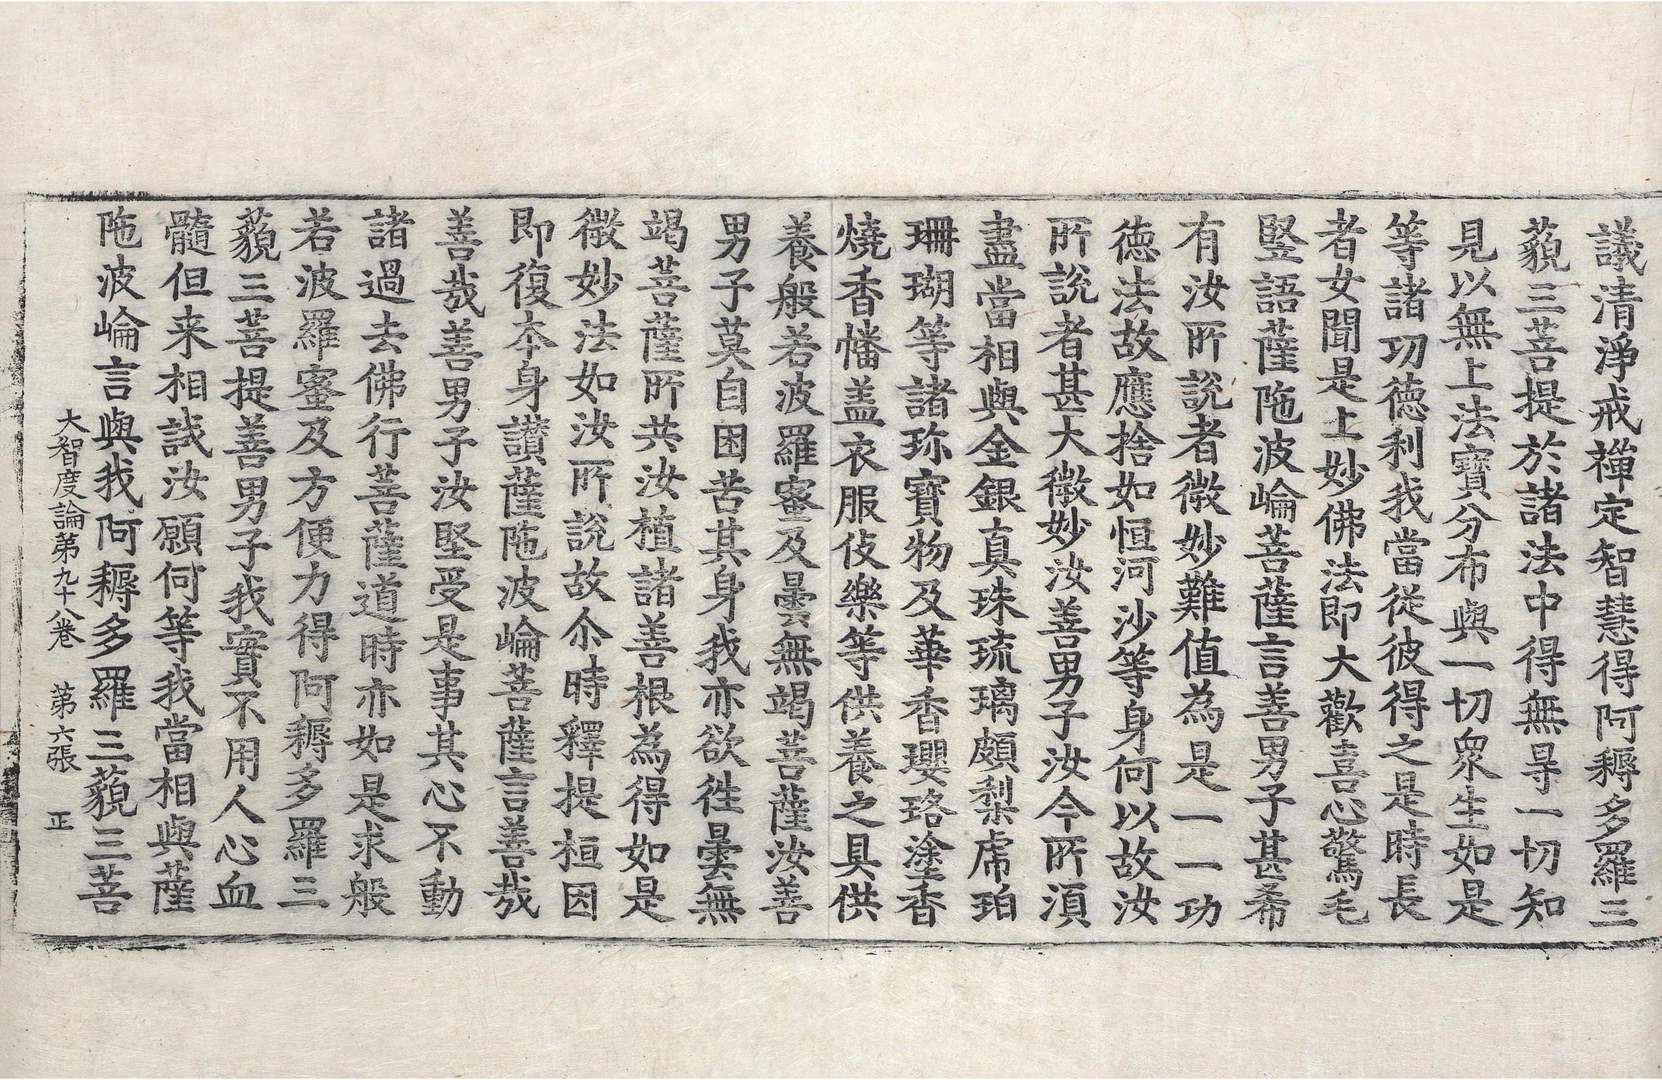 議清淨戒禪定智慧得阿耨多羅三
藐三菩提於諸法中得無㝵一切知
見以無上法寶分布與一切衆生如是
等諸功德利我當從彼得之是時長
者女聞是上妙佛法即大歡喜心驚毛
竪語薩陁波崘菩薩言善男子甚希
有汝所說者微妙難值為是一一功
德法故應捨如恒河沙等身何以故汝
所說者甚大微妙汝善男子汝今所湏
盡當相與金銀真珠琉璃頗梨席珀
珊瑚等諸珎寶物及華香瓔珞塗香
燒香幡盖衣服伎樂等供養之具供
養般若波羅蜜及曇無竭菩薩汝善
男子莫自困苦其身我亦欲徃曇無
竭菩薩所共汝植諸善根為得如是
微妙法如汝所說故尒時釋提桓因
即復本身讃薩陁波崘菩薩言善哉
善哉善男子汝堅受是事其心不動
諸過去佛行菩薩道時亦如是求般
若波羅蜜及方便力得阿耨多羅三
藐三菩提善男子我實不用人心血
髓但来相試汝願何等我當相與薩
陁波崘言與我阿耨多羅三藐三菩
大智度論第九十八卷 第六張 正